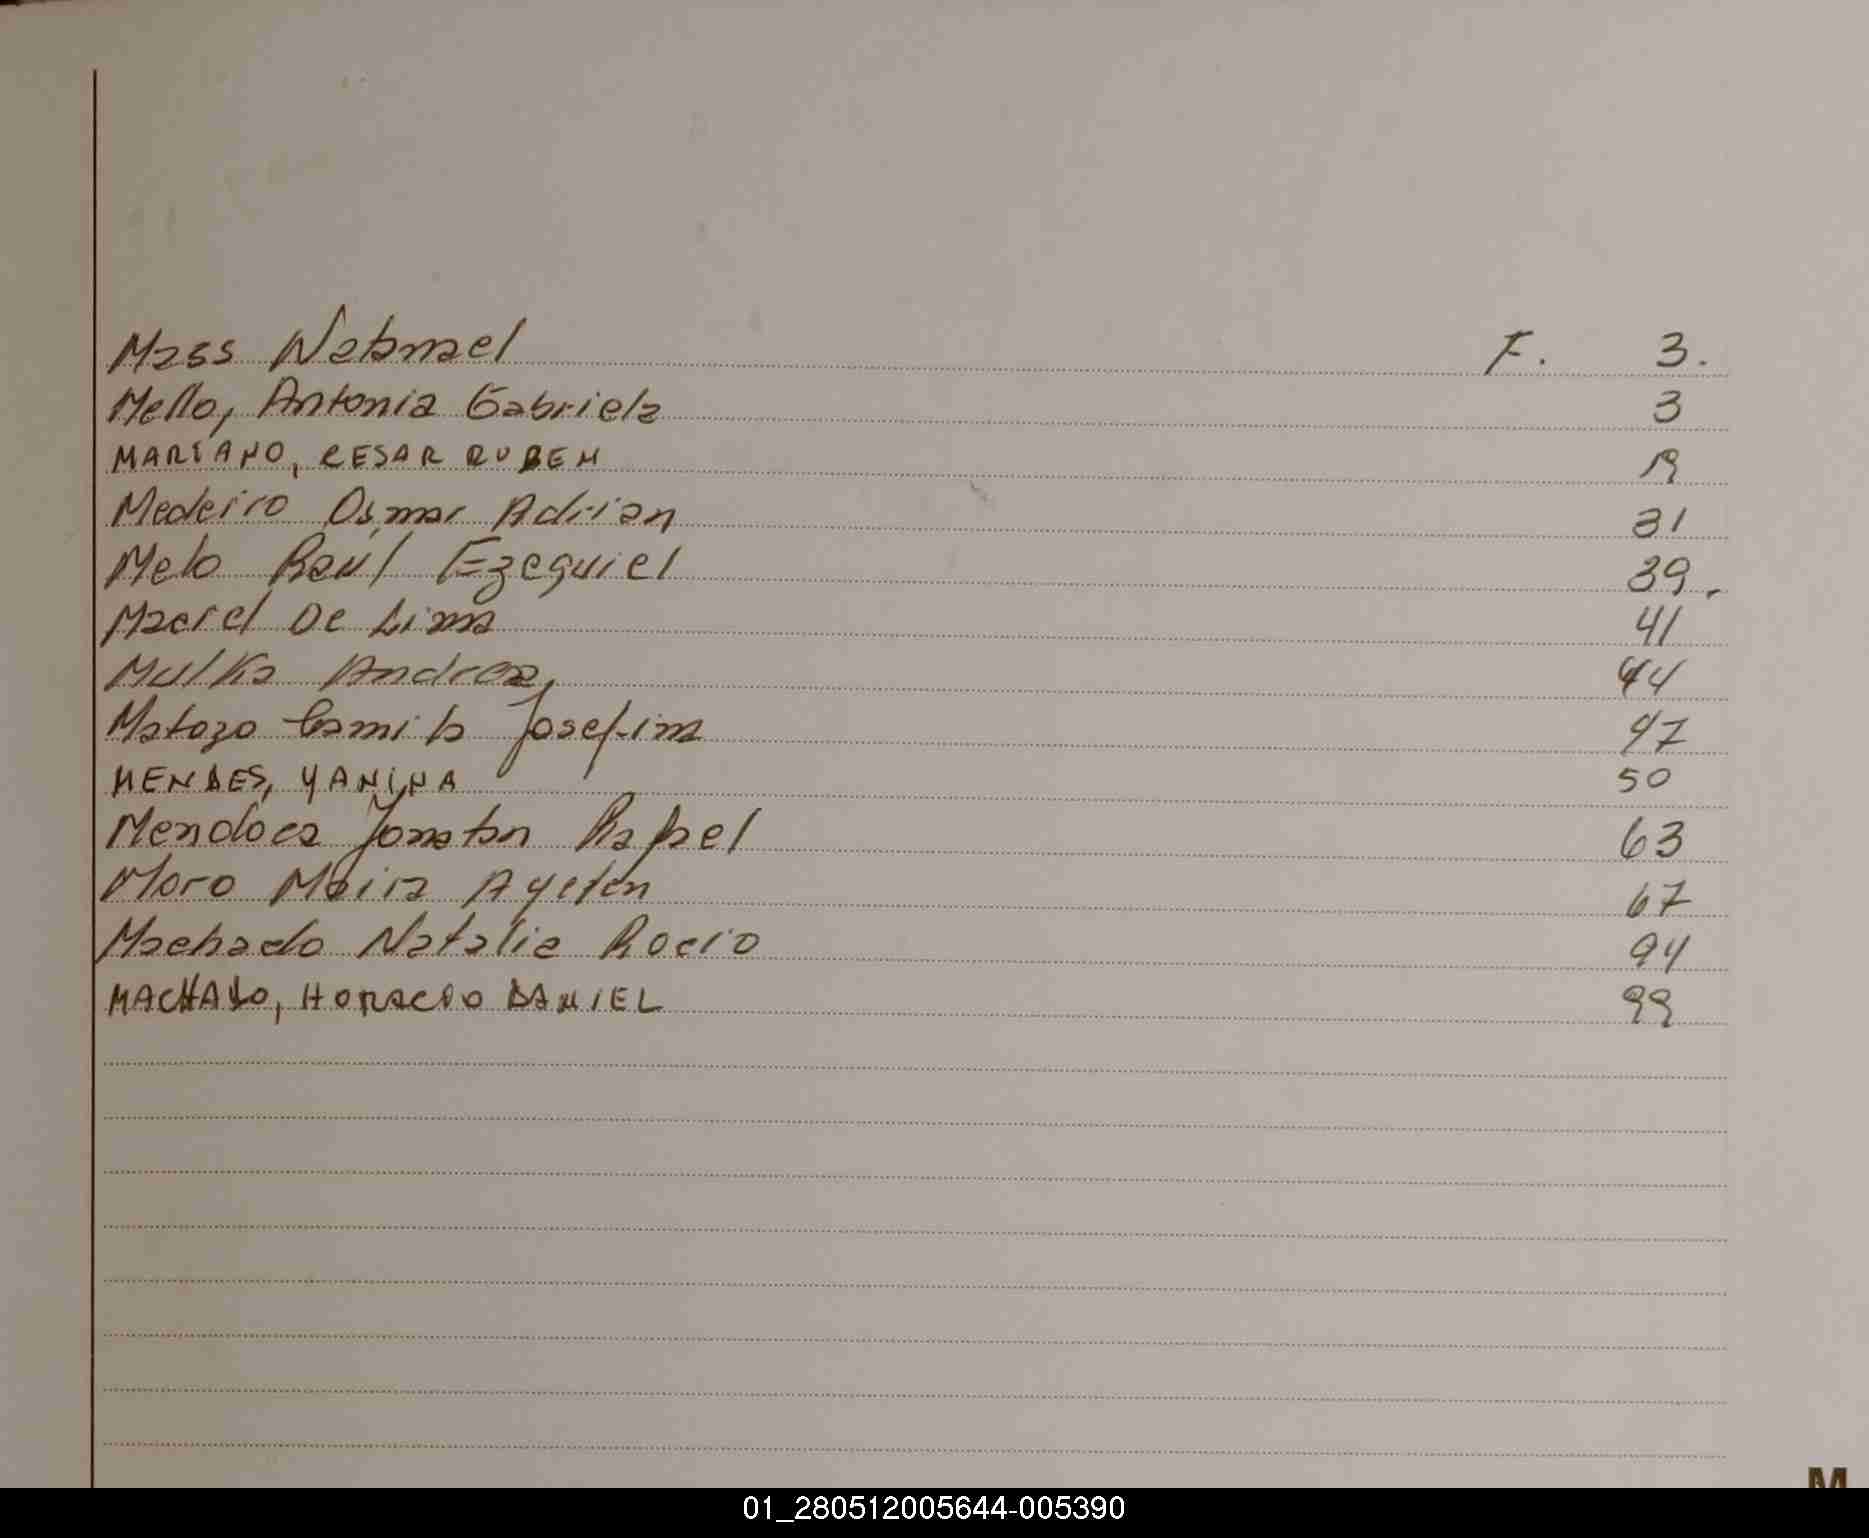 Mass Natanael F. 3.
Mello, Antonia Gabriela 3
MARIANO, CESAR RUBEN 19
Medeiro Osmar Adrian 31
Melo Raúl Ezequiel 39.
Maciel De Lima 41
Mulka Andrea 44
Matozo Camila Josefina 47
MENDES, YANINA 50
Mendoca Jonatan Rafael 63
Moro Maira Ayelen 67
Machado Natalia Rocio 94
MACHADO, HORACIO DANIEL 99
M
01_280512005644-005390